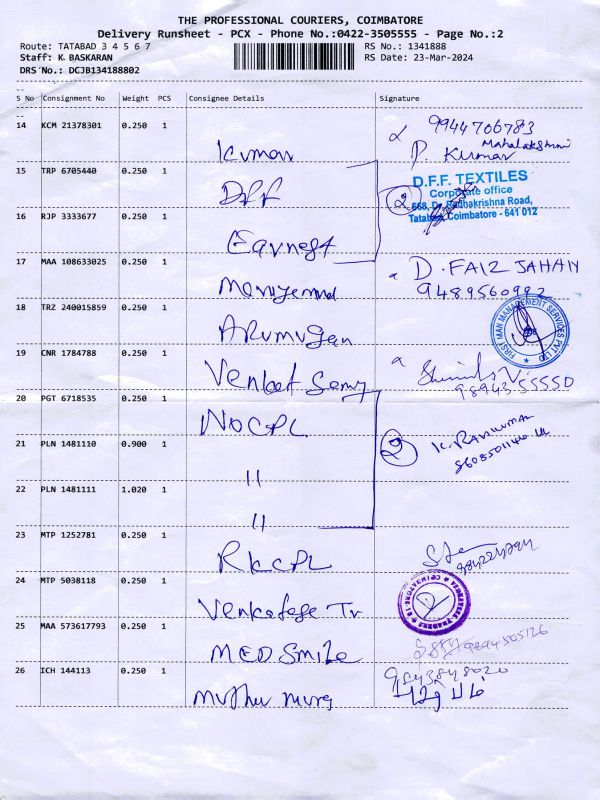 THE PROFESSIONAL COURIERS, COIMBATORE
Delivery Runsheet - PCX - Phone No.:0422-3505555 - Page No.:2
Route: TATABAD 3 4 5 6 7 RS No.: 1341888
Staff: K. BASKARAN RS Date: 23-Mar-2024
DRS No.: DCJB134188802
S No Consignment No Weight PCS Consignee Details Signature
14 KCM 21378301 0.250 1 Kumar 9944706783
Mahalakshmi
P. Kumar
15 TRP 6705440 0.250 1 DFF
D.F.F. TEXTILES
Corporate office
568, Dr. Radhakrishna Road,
Tatabad, Coimbatore - 641 012
2
16 RJP 3333677 0.250 1 Earnest
17 MAA 108633025 0.250 1 D. FAIZ JAHAN
9489560992
18 TRZ 240015859 0.250 1 Arumugam
FIRST MAN MANAGEMENT SERVICES PVT LTD
19 CNR 1784788 0.250 1 Venkat Samy
98943 55550
20 PGT 6718535 0.250 1 NOCPL
21 PLN 1481110 0.900 1 "
2
K. RAVIKUMAR
22 PLN 1481111 1.020 1 "
23 MTP 1252781 0.250 1 RKCPL
24 MTP 5038118 0.250 1 Venkatesa Tr
25 MAA 573617793 0.250 1 MED Smile
9894505126
26 ICH 144113 0.250 1 Muthu Murg
9843848020